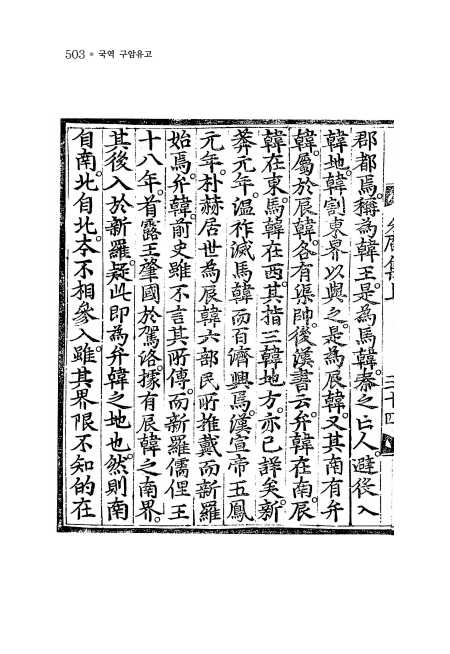 503 * 국역 구암유고
三十四
郡都焉。稱為韓王。是為馬韓。秦之亡人。避役入
韓地。韓割東界以與之。是為辰韓。又其南有弁
韓。屬於辰韓。各有渠帥。後漢書云。弁韓在南。辰
韓在東。馬韓在西。其指三韓地方。亦已詳矣。新
莽元年。温祚滅馬韓而百濟興焉。漢宣帝五鳳
元年。朴赫居世為辰韓六部民所推戴而新羅
始焉。弁韓。前史雖不言其所傳。而新羅儒俚王
十八年。首露王肇國於駕洛。據有辰韓之南界。
其後入於新羅。疑此即為弁韓之地也。然則南
自南。北自北。本不相參入。雖其界限不知的在